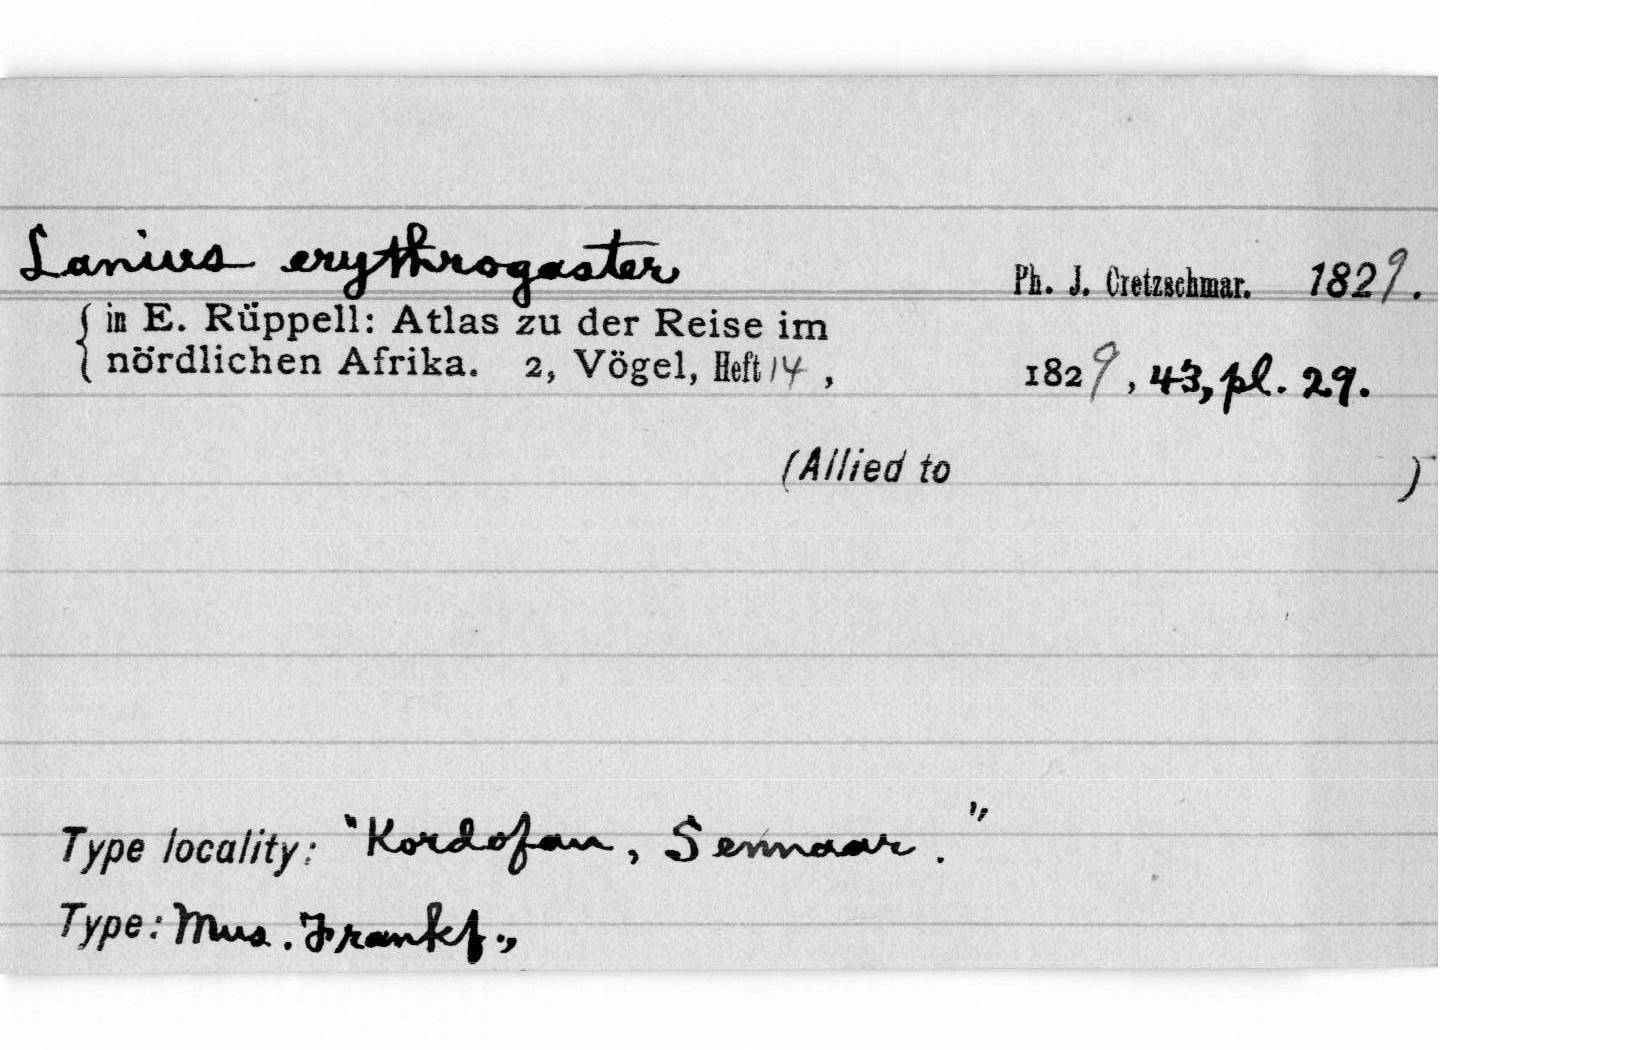 Lanius erythrogaster Ph. J. Cretzschmar. 1829.
in E. Rüppell: Atlas zu der Reise im
nördlichen Afrika. 2, Vögel, Heft 14, 1829, 43, pl. 29.
(Allied to )
Type locality: "Kordofan, Sennaar."
Type: Mus. Frankf.,